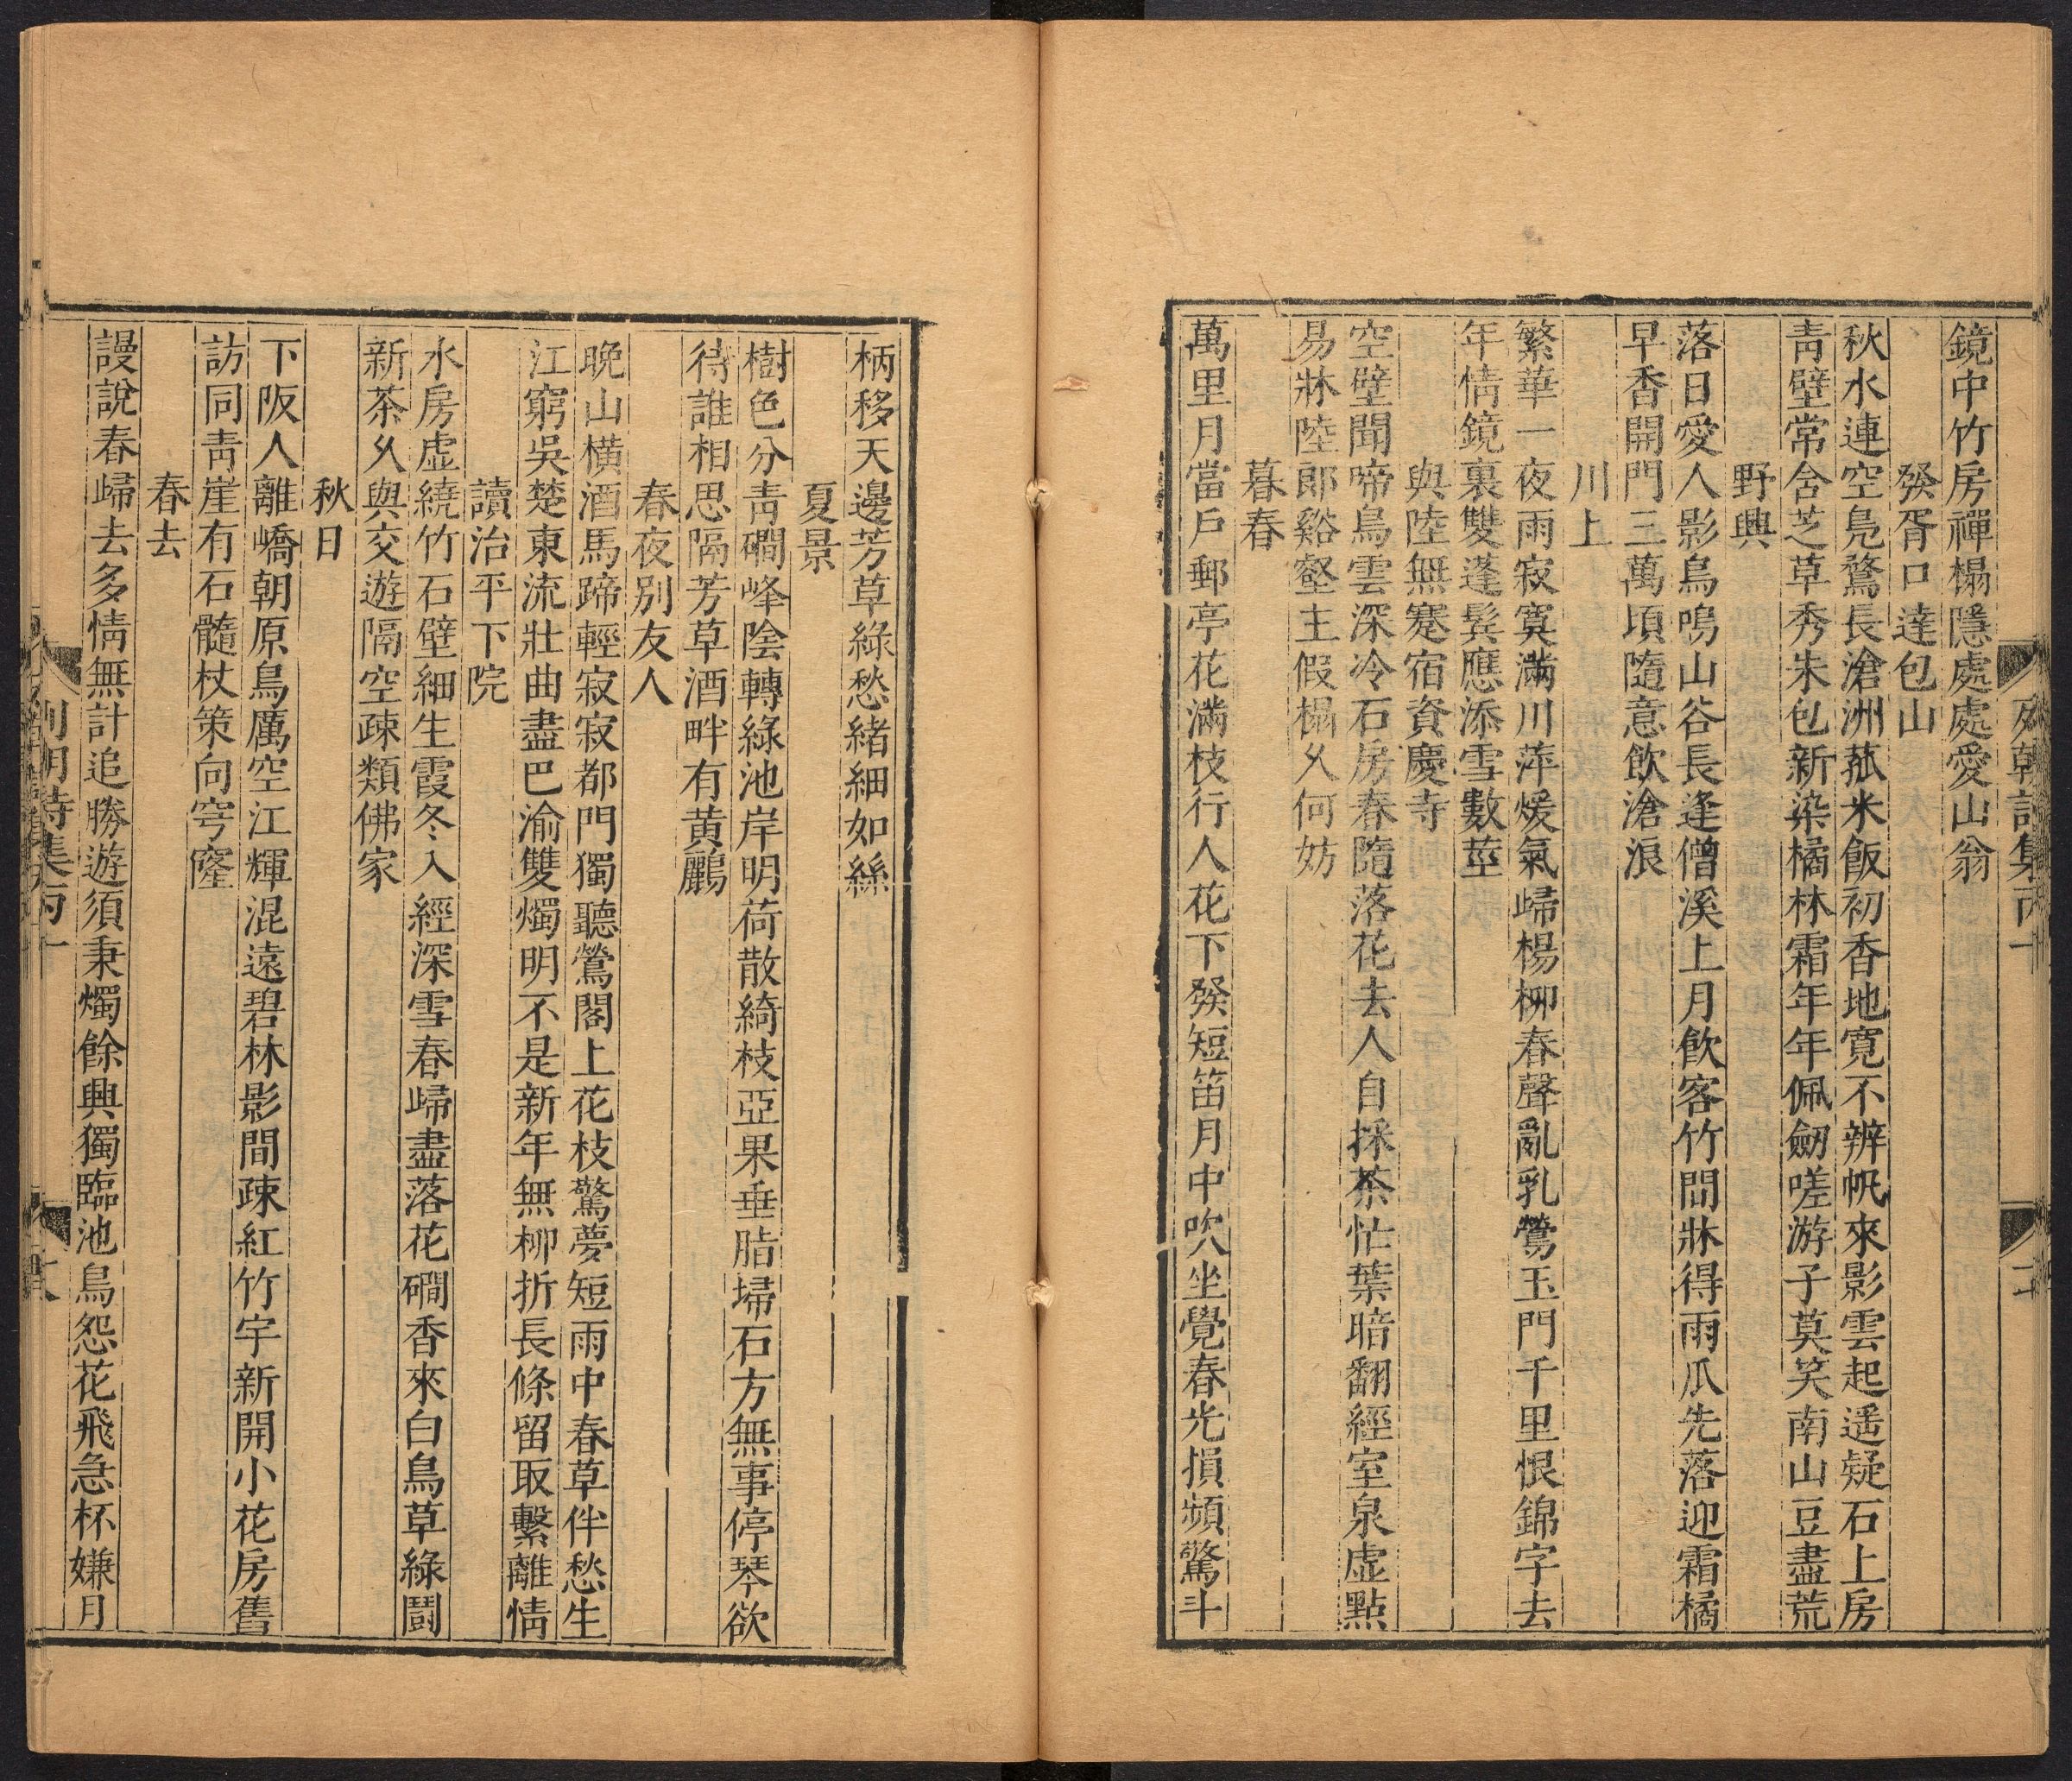 鏡中竹房禪榻隱處處愛山翁
發胥口達包山
秋水連空鳧鶩長滄洲菰米飯初香地寬不辨帆來影雲起遙疑石上房
靑壁常含芝草秀朱包新染橘林霜年年佩劒嗟游子莫笑南山豆盡荒
野興
落日愛人影鳥鳴山谷長逢僧溪上月飮客竹間牀得雨瓜先落迎霜橘
早香開門三萬頃隨意飮滄浪
川上
繁華一夜雨寂寞滿川萍煖氣歸楊柳春聲亂乳鶯玉門千里恨錦字去
年情鏡裏雙蓬鬂應添雪數莖
與陸無蹇宿資慶寺
空壁聞啼鳥雲深冷石房春隨落花去人自採茶忙葉暗翻經室泉虛點
易牀陸郎谿壑主假榻乆何妨
暮春
萬里月當戶郵亭花滿枝行人花下發短笛月中吹坐覺春光損頻驚斗
柄移天邊芳草綠愁緒細如絲
夏景
樹色分靑磵峰陰轉綠池岸明荷散綺枝亞果垂脂埽石方無事停琴欲
待誰相思隔芳草酒畔有黃鸝
春夜別友人
晚山橫酒馬蹄輕寂寂都門獨聽鶯閣上花枝驚夢短雨中春草伴愁生
江窮吳楚東流壯曲盡巴渝雙燭明不是新年無柳折長條留取繫離情
讀治平下院
水房虛繞竹石壁細生霞冬入經深雪春歸盡落花磵香來白鳥草綠鬪
新茶乆與交遊隔空疎類佛家
秋日
下阪人離嶠朝原鳥厲空江輝混遠碧林影間疎紅竹宇新開小花房舊
訪同靑崖有石髓杖策向穹窿
春去
謾說春歸去多情無計追勝遊須秉燭餘興獨臨池鳥怨花飛急杯嫌月
列朝詩集丙十